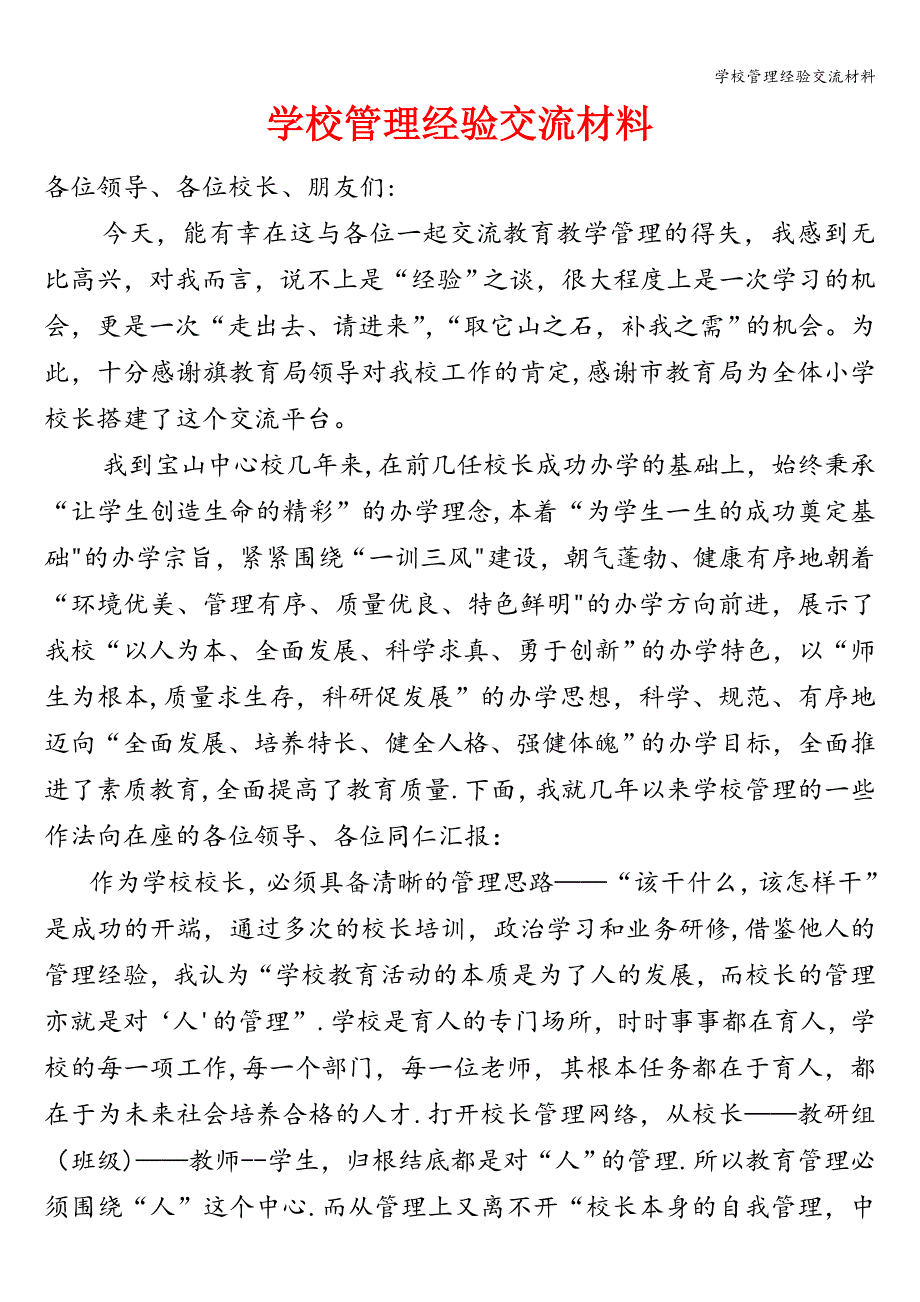 学校管理经验交流材料
学校管理经验交流材料
各位领导、各位校长、朋友们:
今天，能有幸在这与各位一起交流教育教学管理的得失，我感到无
比高兴，对我而言，说不上是“经验”之谈，很大程度上是一次学习的机
会，更是一次“走出去、请进来”，“取它山之石，补我之需”的机会。为
此，十分感谢旗教育局领导对我校工作的肯定,感谢市教育局为全体小学
校长搭建了这个交流平台。
我到宝山中心校几年来,在前几任校长成功办学的基础上，始终秉承
“让学生创造生命的精彩”的办学理念,本着“为学生一生的成功奠定基
础"的办学宗旨，紧紧围绕“一训三风"建设，朝气蓬勃、健康有序地朝着
“环境优美、管理有序、质量优良、特色鲜明"的办学方向前进，展示了
我校“以人为本、全面发展、科学求真、勇于创新”的办学特色，以“师
生为根本,质量求生存，科研促发展”的办学思想，科学、规范、有序地
迈向“全面发展、培养特长、健全人格、强健体魄”的办学目标，全面推
进了素质教育,全面提高了教育质量.下面,我就几年以来学校管理的一些
作法向在座的各位领导、各位同仁汇报：
作为学校校长,必须具备清晰的管理思路——“该干什么,该怎样干”
是成功的开端，通过多次的校长培训，政治学习和业务研修,借鉴他人的
管理经验，我认为“学校教育活动的本质是为了人的发展，而校长的管理
亦就是对‘人'的管理”.学校是育人的专门场所，时时事事都在育人，学
校的每一项工作,每一个部门，每一位老师，其根本任务都在于育人，都
在于为未来社会培养合格的人才.打开校长管理网络，从校长——教研组
（班级)——教师--学生，归根结底都是对“人”的管理.所以教育管理必
须围绕“人”这个中心.而从管理上又离不开“校长本身的自我管理，中